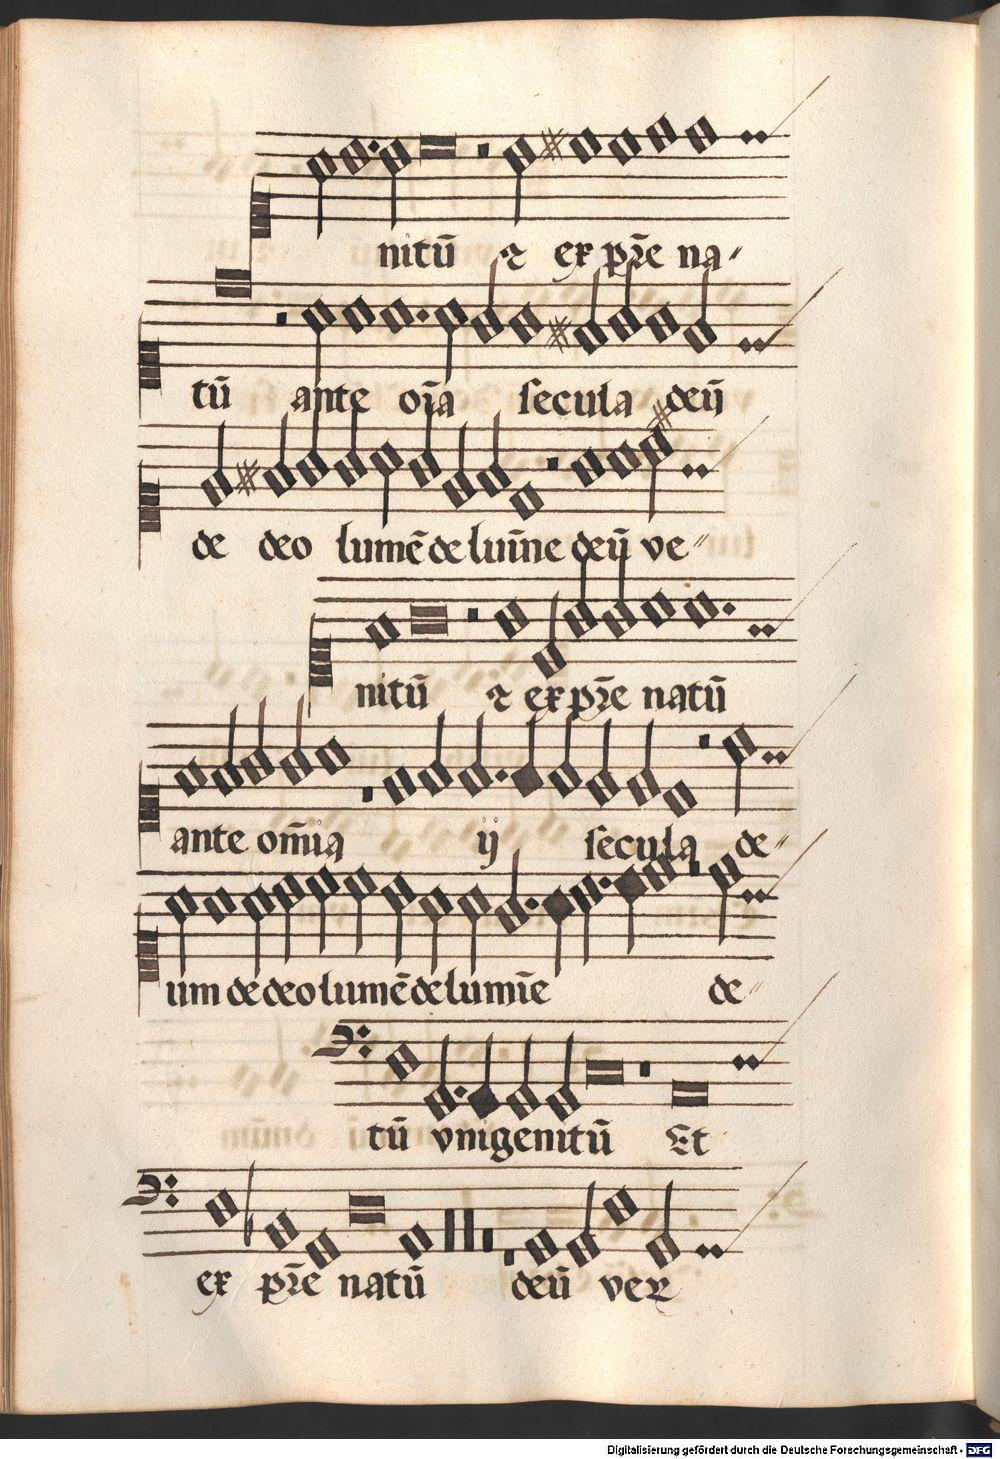 nitū ⁊ ex pr̄e na〃
tū ante oīa secula deū
de deo lumē de luīne deū ve〃
nitū ⁊ ex pr̄e natū
ante om̄ia ij secula de〃
um de deo lumē de lumīe de〃
tū vnigenitū Et
ex pr̄e natū deū ver
Digitalisierung gefördert durch die Deutsche Forschungsgemeinschaft - DFG